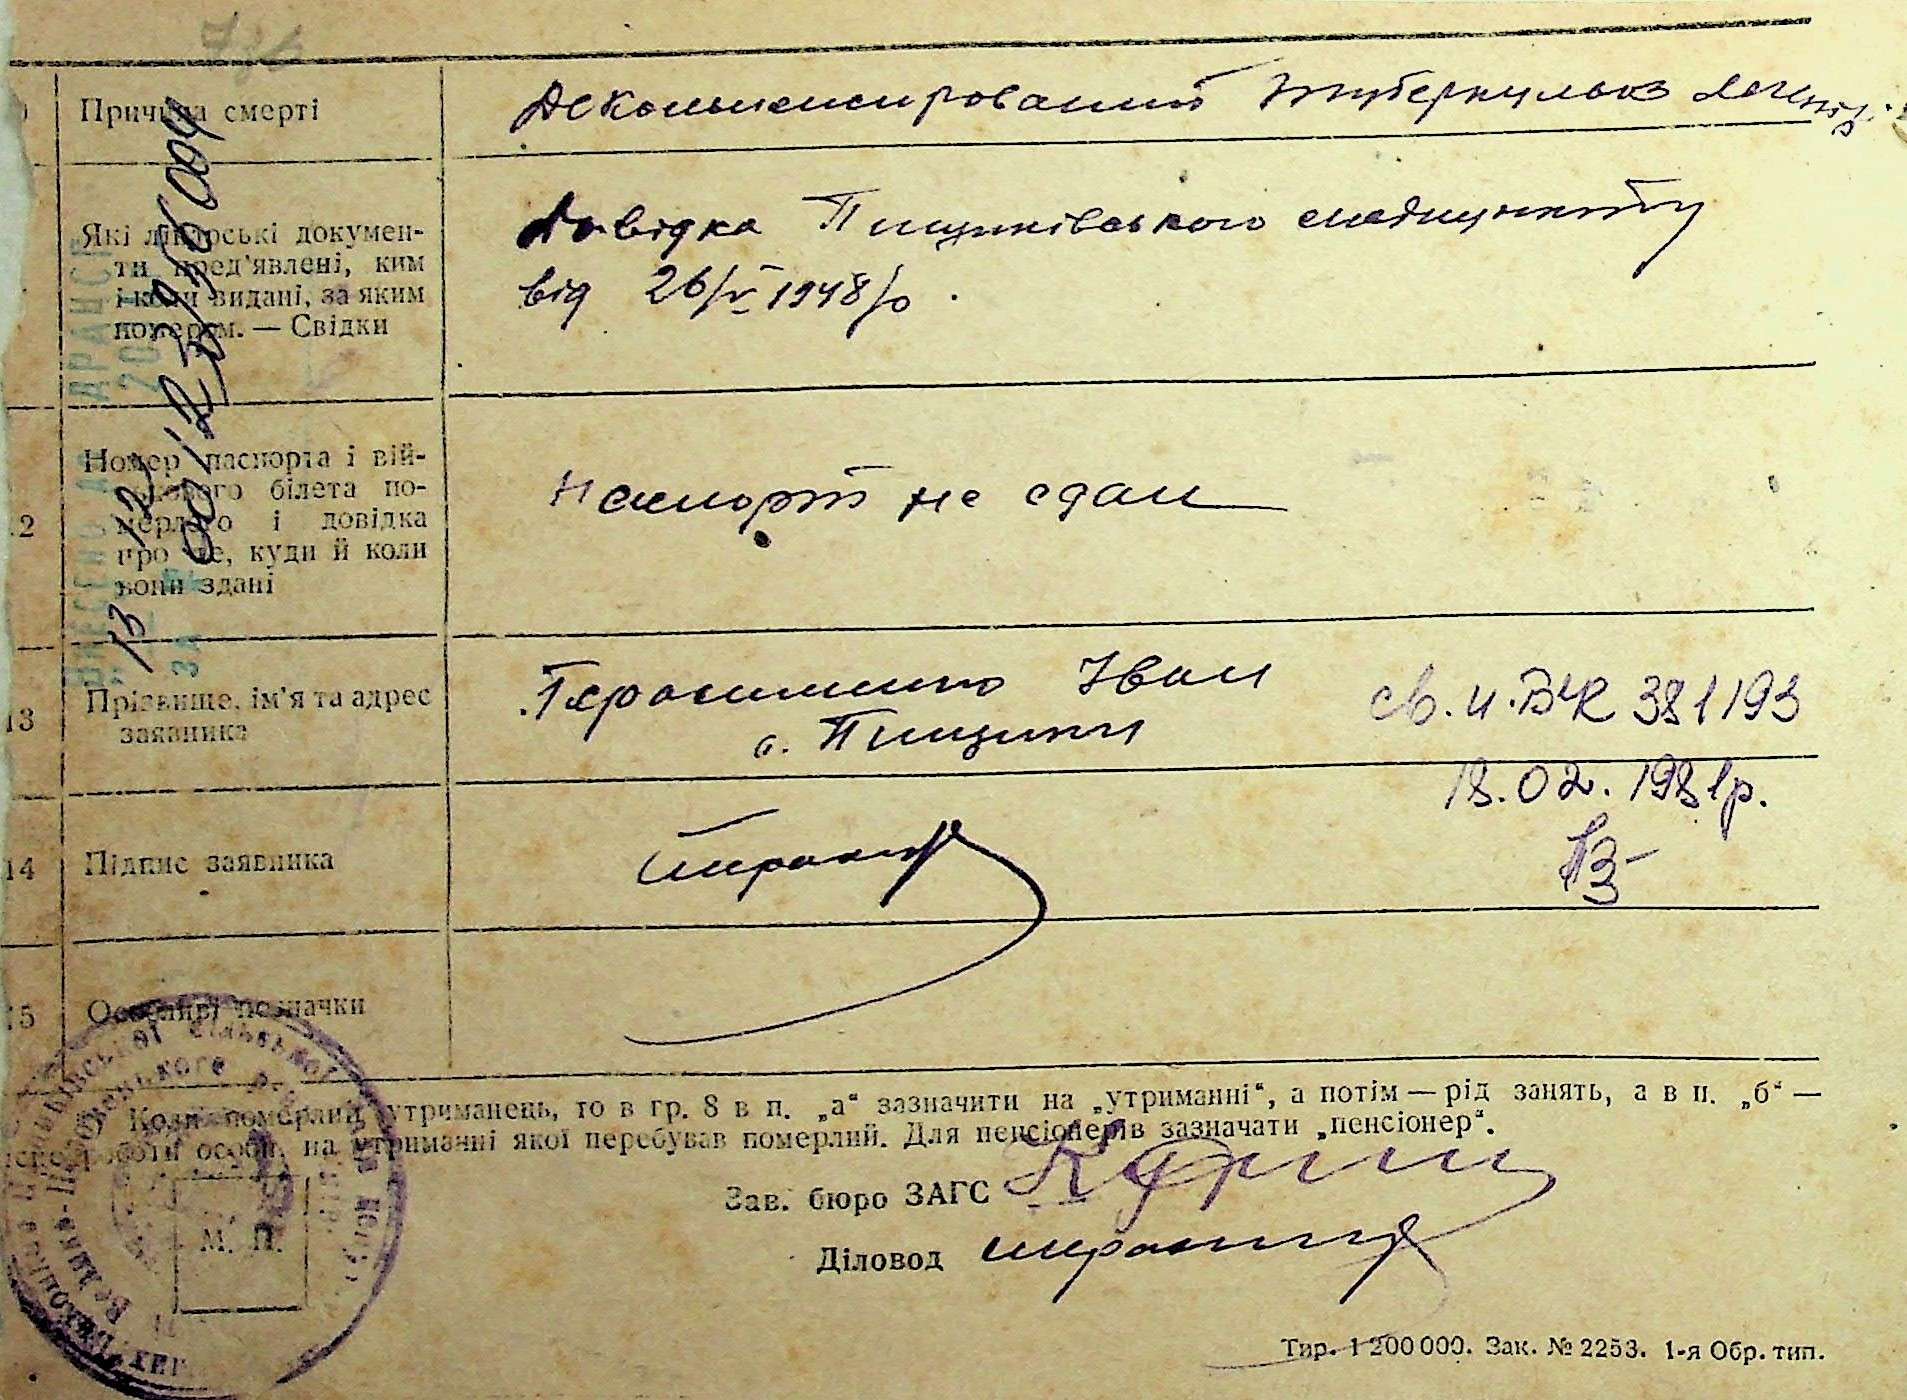 Причина смерті
Декомпенсирований туберкульоз легень
Які лікарські докумен-
ти пред'явлені, ким
і коли видані, за яким
номером. — Свідки
Довідка Пищиківського медпункту
від 26/V 1948 р.
2
Номер паспорта і вій-
ськового білета по-
мерлого і довідка
про це, куди й коли
вони здані
Паспорт не сдан
13
Прізвище, ім'я та адрес
заявника
Герасименко Іван
с. Пищики
св. и. ВЧК 381193
18.02.1981р.
14
Підпис заявника
15
Особливі позначки
Коли померлий утриманець, то в гр. 8 в п. „а“ зазначити на „утриманні“, а потім — рід занять, а в п. „б“ —
роботи особи, на утриманні якої перебував померлий. Для пенсіонерів зазначати „пенсіонер“.
Зав. бюро ЗАГС
Діловод
М. П.
Тир. 1 200 000. Зак. № 2253. 1-я Обр. тип.